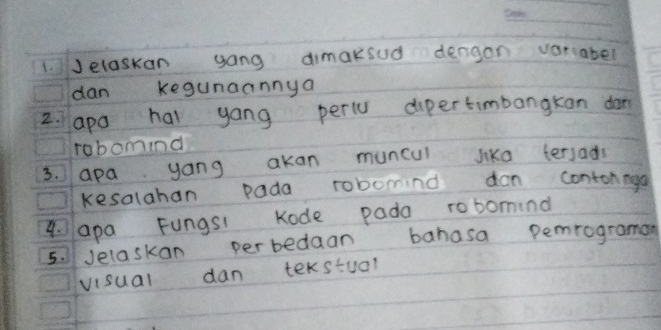 1. Jelaskan yang dimaksud dengan variabel
dan kegunaannya
2. apa hal yang perlu dipertimbangkan dari
robomind
3. apa yang akan muncul jika terjadi
kesalahan pada robomind dan contohnya
4. apa Fungsi kode pada robomind
5. Jelaskan perbedaan bahasa pemrograman
visual dan tekstual